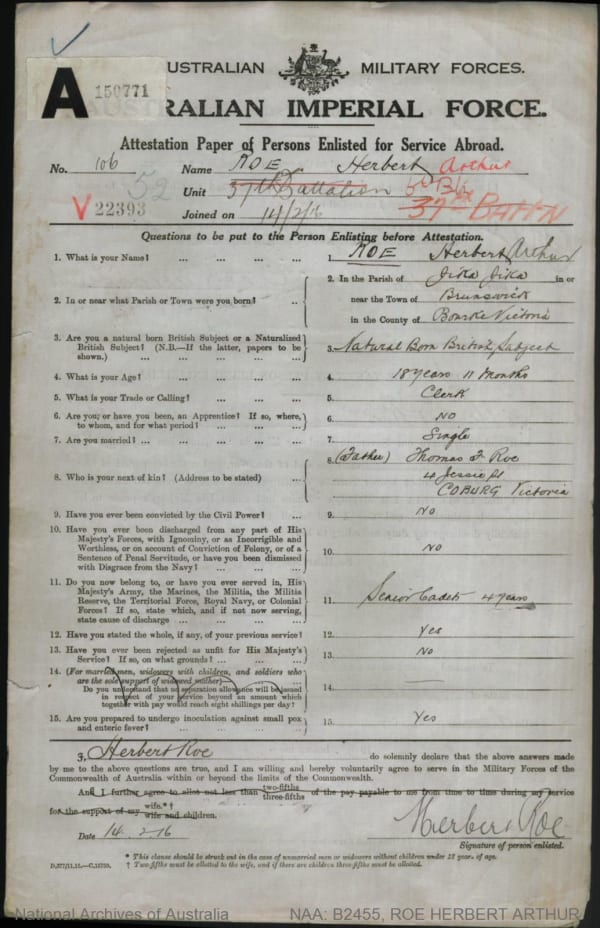 AUSTRALIAN MILITARY FORCES.
A 150771
AUSTRALIAN IMPERIAL FORCE.
Attestation Paper of Persons Enlisted for Service Abroad.
No. 106 Name ROE Herbert Arthur
52 Unit 37th Battalion
V 22393 37th BATTN
Joined on 14/2/16
Questions to be put to the Person Enlisting before Attestation.
1. What is your Name? ... ... ... ... 1. ROE Herbert Arthur
2. In or near what Parish or Town were you born? ... 2. In the Parish of Jika Jika in or
near the Town of Brunswick
in the County of Bourke Victoria
3. Are you a natural born British Subject or a Naturalized
British Subject? (N.B.—If the latter, papers to be
shown.) ... ... ... ... 3. Natural Born British Subject
4. What is your Age? ... ... ... ... 4. 18 years 11 months
5. What is your Trade or Calling? ... ... ... 5. Clerk
6. Are you, or have you been, an Apprentice? If so, where,
to whom, and for what period? ... ... ... 6. NO
7. Are you married? ... ... ... ... 7. Single
8. Who is your next of kin? (Address to be stated) ... 8. (Father) Thomas F Roe
4 Jessie St
COBURG Victoria
9. Have you ever been convicted by the Civil Power? ... 9. No
10. Have you ever been discharged from any part of His
Majesty's Forces, with Ignominy, or as Incorrigible and
Worthless, or on account of Conviction of Felony, or of a
Sentence of Penal Servitude, or have you been dismissed
with Disgrace from the Navy? ... ... ... 10. No
11. Do you now belong to, or have you ever served in, His
Majesty's Army, the Marines, the Militia, the Militia
Reserve, the Territorial Force, Royal Navy, or Colonial
Forces? If so, state which, and if not now serving,
state cause of discharge ... ... ... 11. Senior Cadets 4 years
12. Have you stated the whole, if any, of your previous service? 12. Yes
13. Have you ever been rejected as unfit for His Majesty's
Service? If so, on what grounds? ... ... ... 13. No
14. (For married men, widowers with children, and soldiers who
are the sole support of widowed mother)—
Do you understand that no separation allowance will be issued
in respect of your service beyond an amount which
together with pay would reach eight shillings per day? 14. —
15. Are you prepared to undergo inoculation against small pox
and enteric fever? ... ... ... ... 15. Yes
I, Herbert Roe do solemnly declare that the above answers made
by me to the above questions are true, and I am willing and hereby voluntarily agree to serve in the Military Forces of the
Commonwealth of Australia within or beyond the limits of the Commonwealth.
And I further agree to allot not less than two-fifths three-fifths of the pay payable to me from time to time during my service
for the support of my wife.*† wife and children.
Date 14.2.16 Herbert Roe
Signature of person enlisted.
* This clause should be struck out in the case of unmarried men or widowers without children under 18 years of age.
† Two-fifths must be allotted to the wife, and if there are children three-fifths must be allotted.
National Archives of Australia NAA: B2455, ROE HERBERT ARTHUR